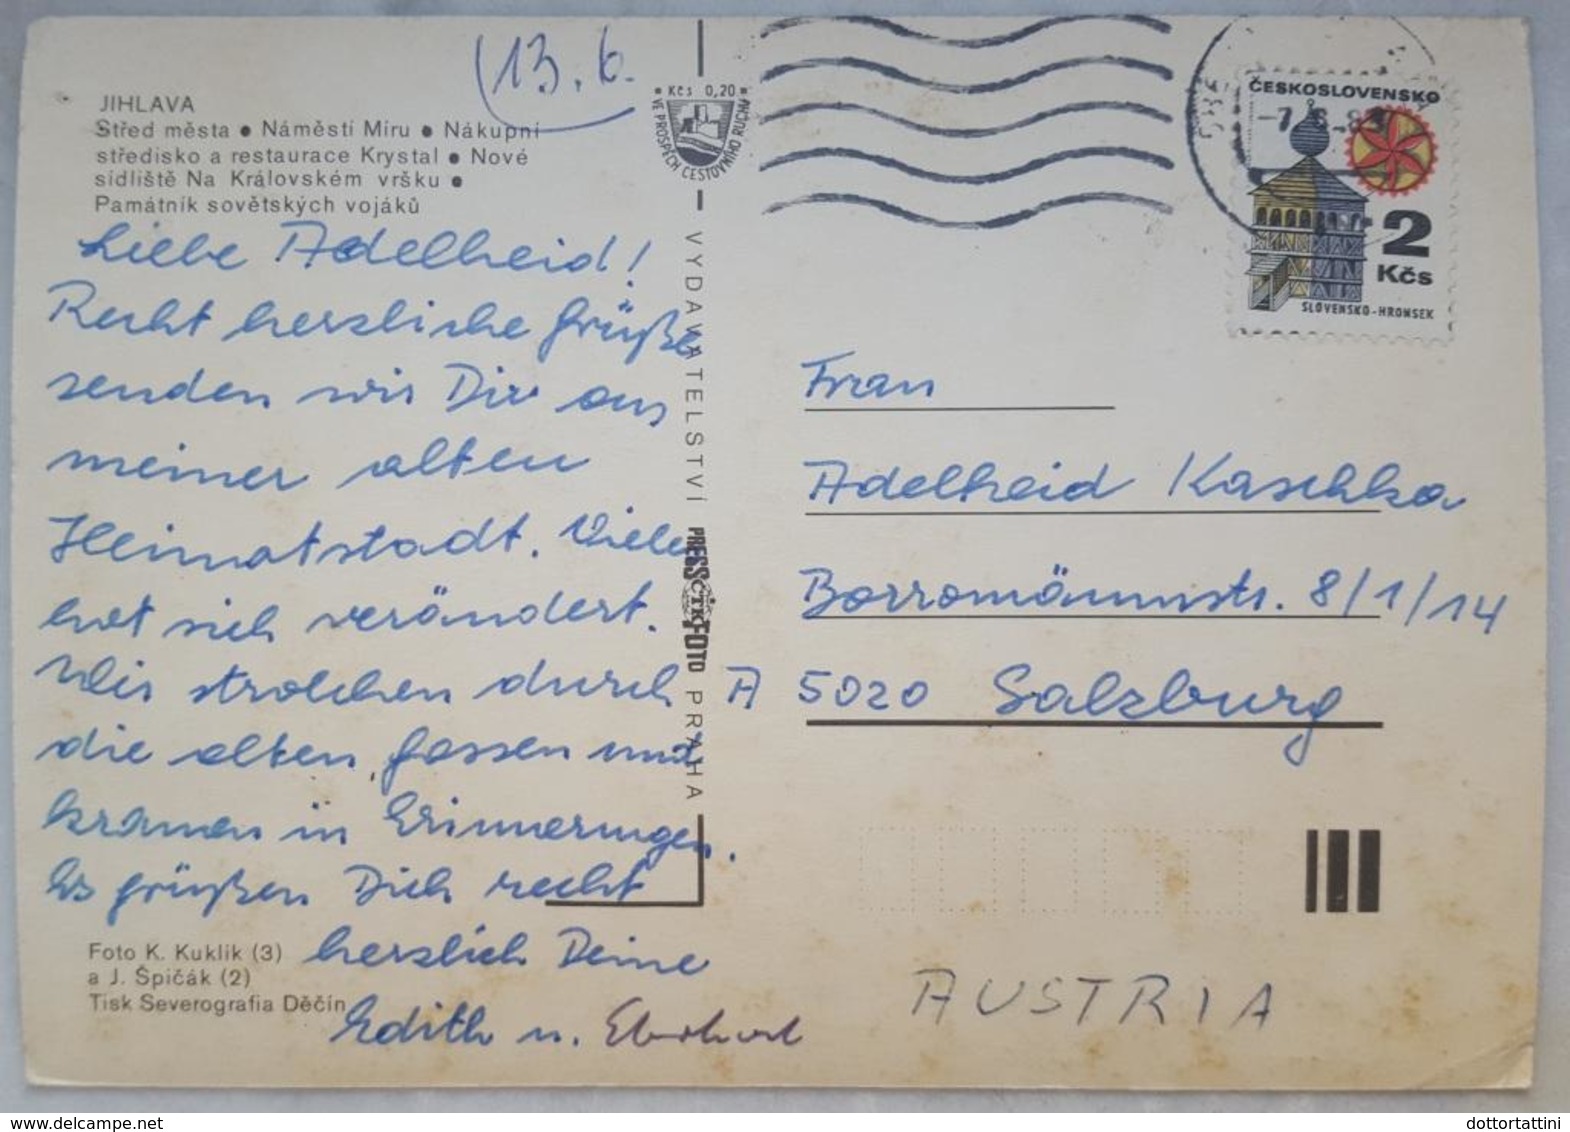 (13. 6.
JIHLAVA
Střed města • Náměstí Míru • Nákupní
středisko a restaurace Krystal • Nové
sídliště Na Královském vršku •
Památník sovětských vojáků
Liebe Adelheid!
Recht herzliche Grüße
senden wir Dir aus
meiner alten
Heimatstadt. Vieles
hat sich verändert.
Wir strolchen durch
die alten Gassen und
kramen in Erinnerungen.
Es grüßen Dich recht
herzlich Deine
Edith u. Eberhard
Foto K. Kuklík (3)
a J. Špičák (2)
Tisk Severografia Děčín
• Kčs 0,20 •
VE PROSPĚCH CESTOVNÍHO RUCHU
VYDAVATELSTVÍ PRESSFOTO PRAHA
ČTK
ČESKOSLOVENSKO
2
Kčs
SLOVENSKO-HRONSEK
Frau
Adelheid Kaschka
Borromäumstr. 8/1/14
A 5020 Salzburg
AUSTRIA
www.delcampe.net
dottortattini